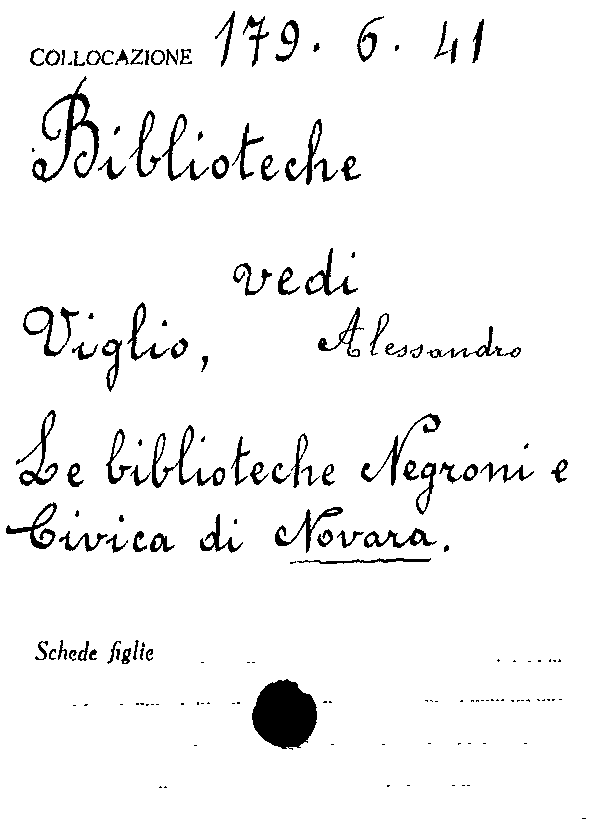 COLLOCAZIONE 179. 6. 41
Biblioteche
vedi
Viglio, Alessandro
Le biblioteche Negroni e
Civica di Novara.
Schede figlie